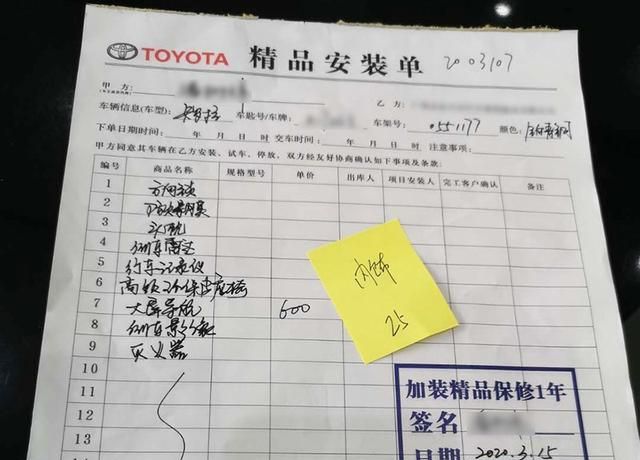 TOYOTA 精品安装单 2003107
甲方:
乙方:
车辆信息(车型): 车匙号/车牌: 车架号: 0551177 颜色:
下单日期时间: 年 月 日 时 交车时间: 年 月 日 时 注意事项:
甲方同意其车辆在乙方安装、试车、停放,双方经友好协商确认如下事项及条款:
编号 商品名称 规格型号 单价 出库人 项目安装人 完工客户确认 备注
1 方向盘锁
2
3 头枕
4 倒车雷达
5 行车记录仪
6
7 大屏导航 600
8 倒车影像
9 灭火器
10
11
12
13
14
内饰
25
加装精品保修1年
签名
日期 2020.3.15